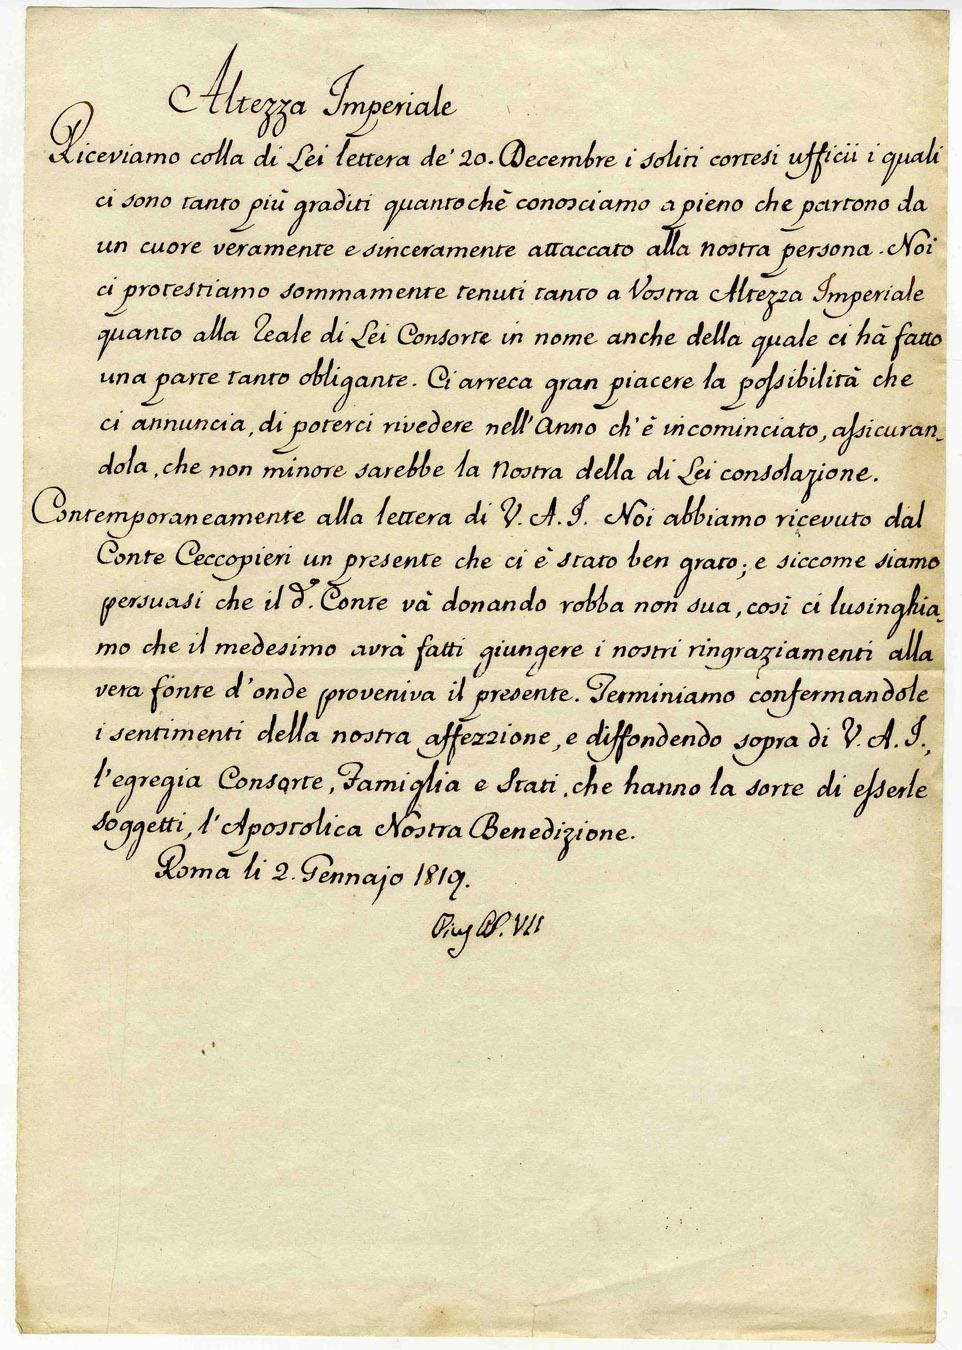 Altezza Imperiale
Riceviamo colla di Lei lettera de' 20. Decembre i soliti cortesi ufficii i quali
ci sono tanto più graditi quantochè conosciamo a pieno che partono da
un cuore veramente e sinceramente attaccato alla nostra persona. Noi
ci protestiamo sommamente tenuti tanto a Vostra Altezza Imperiale
quanto alla Reale di Lei Consorte in nome anche della quale ci hà fatto
una parte tanto obligante. Ci arreca gran piacere la possibilità che
ci annuncia, di poterci rivedere nell'Anno ch'è incominciato, assicuran_
dola, che non minore sarebbe la Nostra della di Lei consolazione.
Contemporaneamente alla lettera di V. A. I. Noi abbiamo ricevuto dal
Conte Ceccopieri un presente che ci è stato ben grato; e siccome siamo
persuasi che il d.º Conte và donando robba non sua, così ci lusinghia_
mo che il medesimo avrà fatti giungere i nostri ringraziamenti alla
vera fonte d'onde proveniva il presente. Terminiamo confermandole
i sentimenti della nostra affezzione, e diffondendo sopra di V. A. I.,
l'egregia Consorte, Famiglia e Stati, che hanno la sorte di esserle
soggetti, l'Apostolica Nostra Benedizione.
Roma li 2. Gennajo 1819.
Pius PP. VII